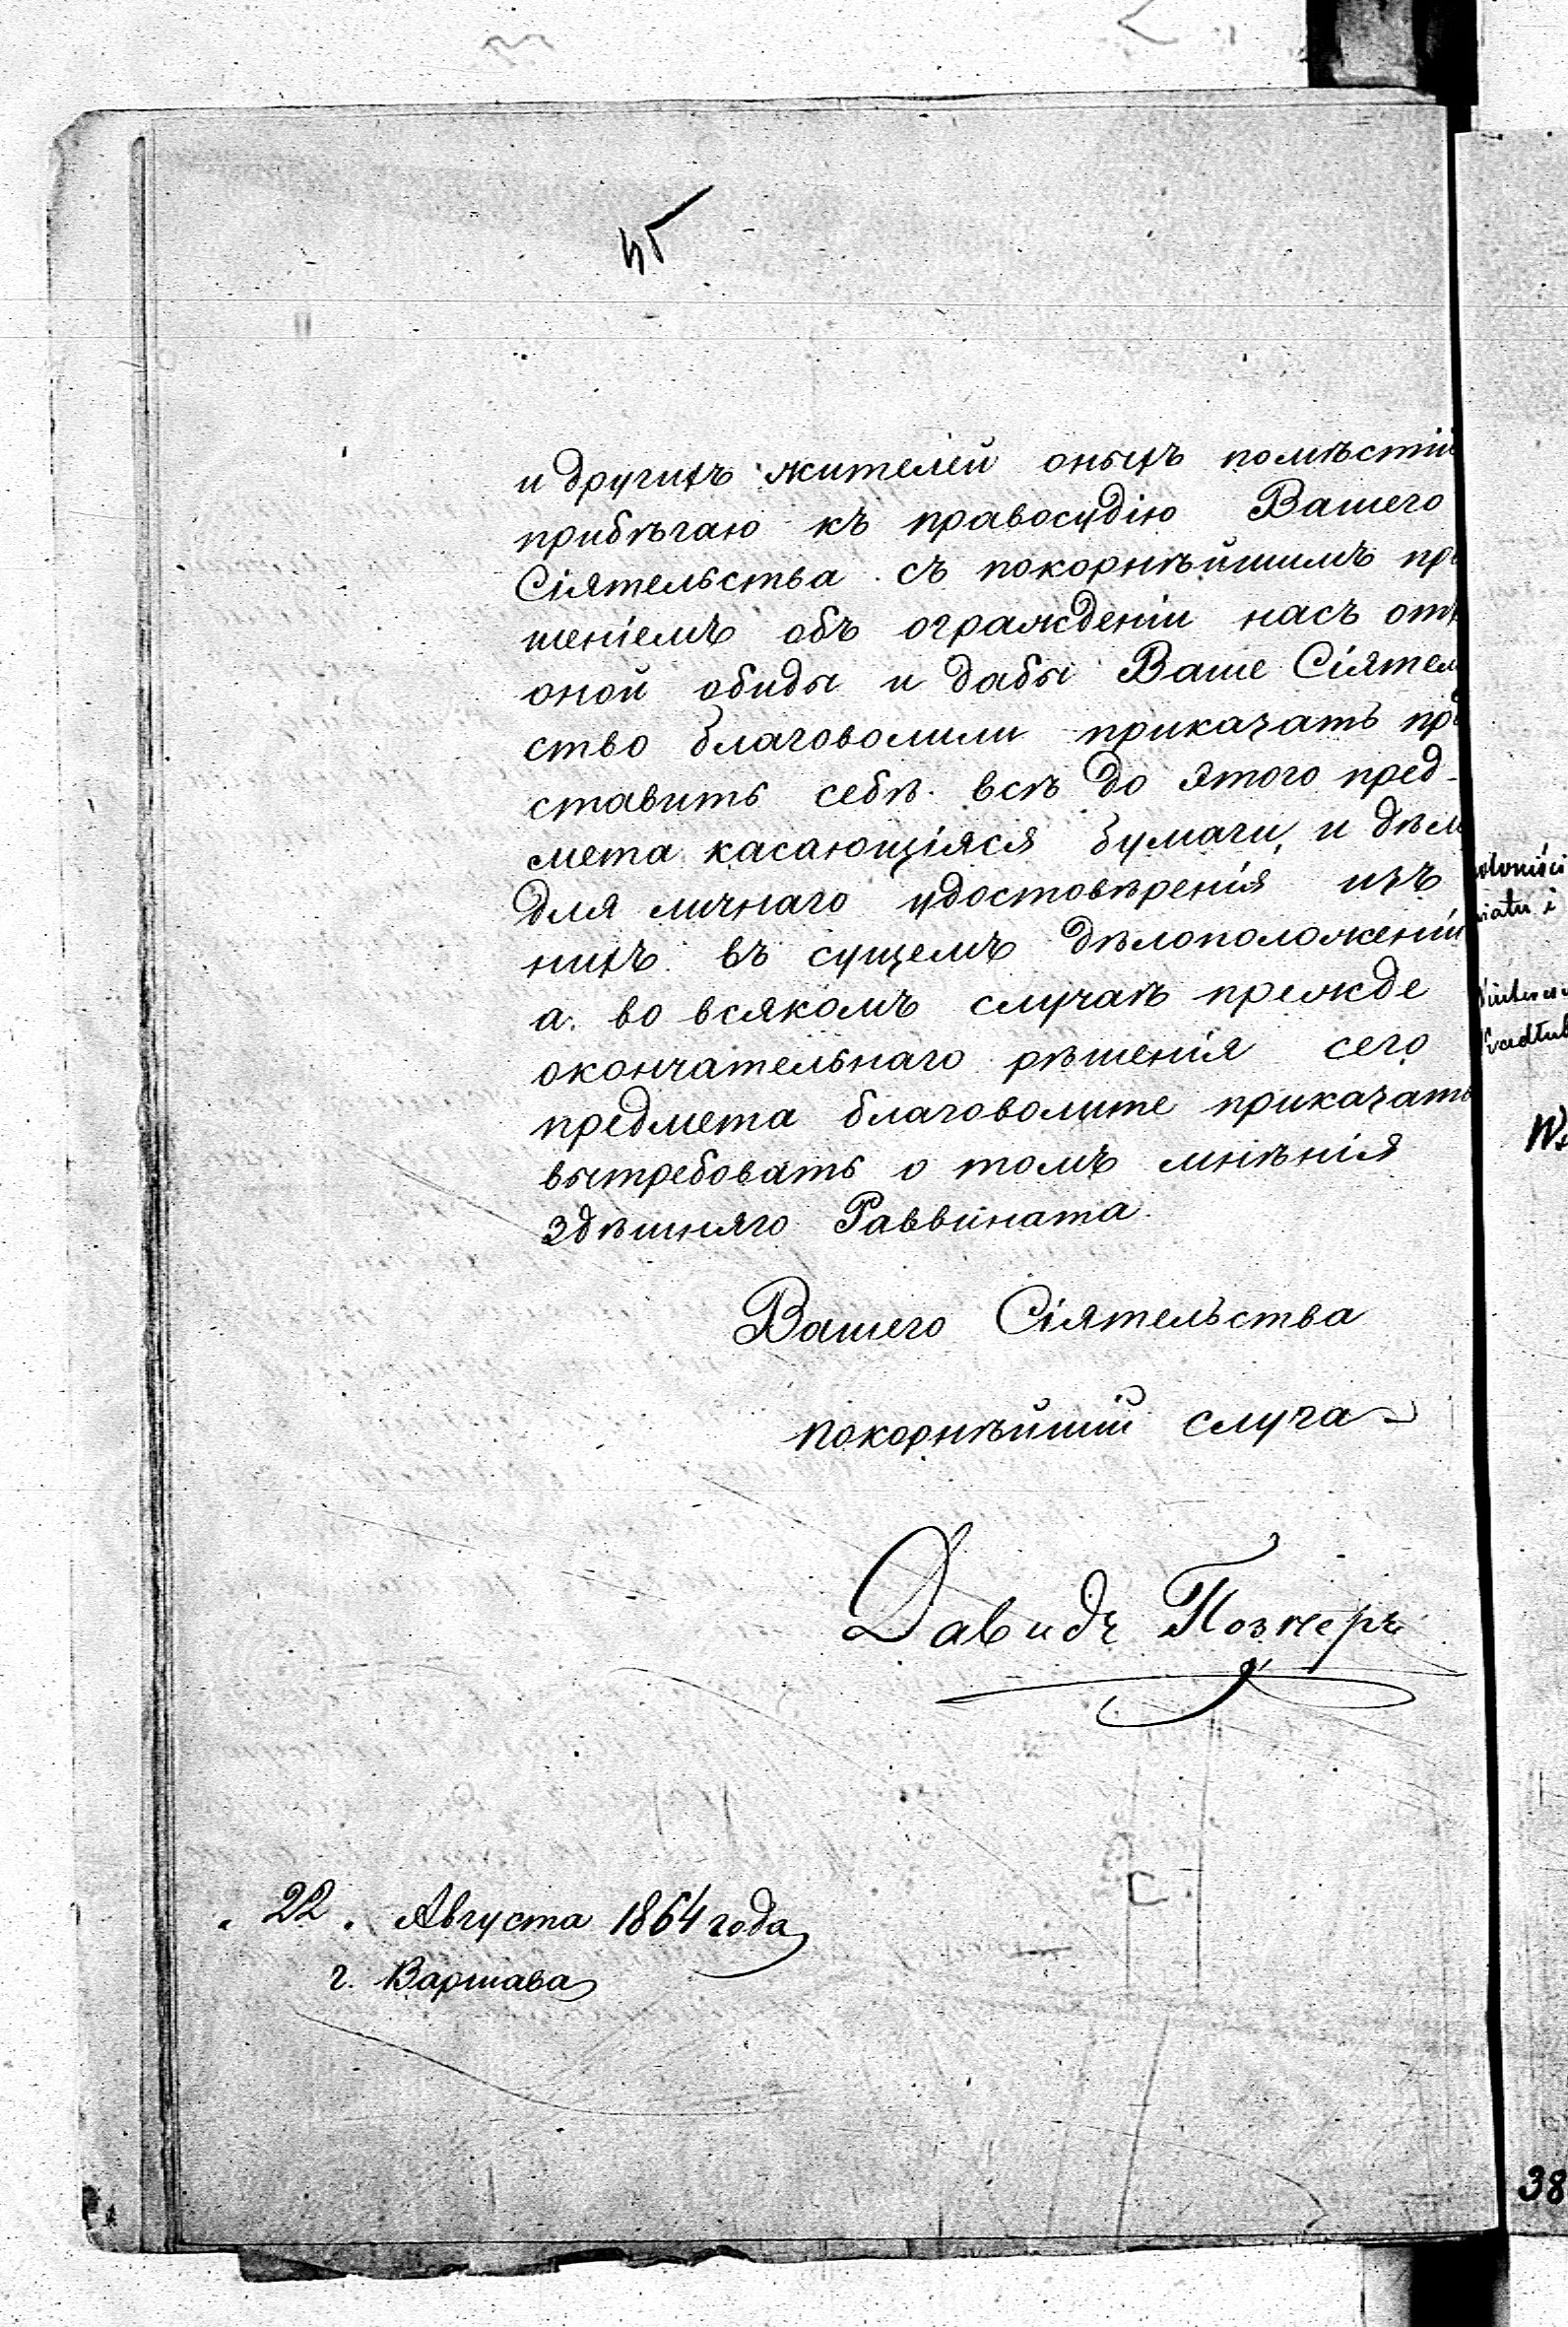 и другихъ жителей оныхъ помѣстій
прибѣгаю къ правосудію Вашего
Сіятельства съ покорнѣйшимъ про
шеніемъ объ огражденіи насъ отъ
оной обиды и дабы Ваше Сіятель
ство благоволили приказать пред
ставить себѣ всѣ до этого пред-
мета касающіяся бумаги, и дѣла
для личнаго удостовѣренія изъ
нихъ въ сущемъ дѣлоположеніи
а во всякомъ случаѣ прежде
окончательнаго рѣшенія сего
предмета благоволите приказать
вытребовать о томъ мнѣнія
здѣшняго Раввината.
Вашего Сіятельства
покорнѣйшій слуга
Давидъ Познеръ
„22„ Августа 1864 года
г. Варшава
38